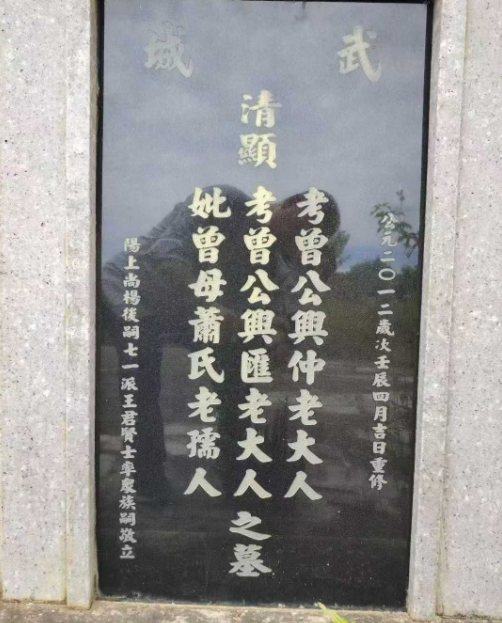 武城
公元二〇一二歲次壬辰四月吉日重修
清顯
考曾公興仲老大人
考曾公興匯老大人
妣曾母蕭氏老孺人
之墓
陽上尚楊後嗣七一派王君賢士率眾族嗣敬立